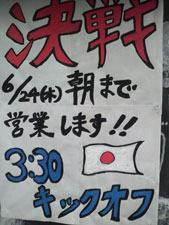 決戦
6/24(木)朝まで
営業します!!
3:30
キックオフ